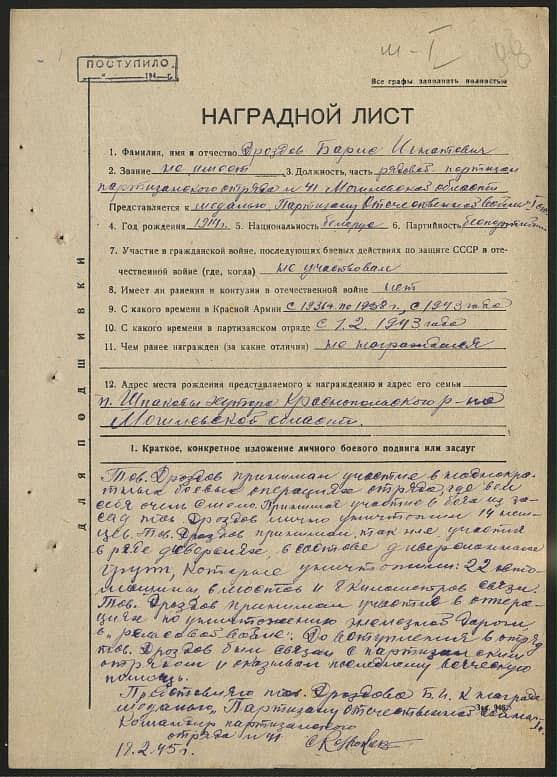 ш-I
98
ПОСТУПИЛО
194 г.
Все графы заполнять полностью
НАГРАДНОЙ ЛИСТ
1. Фамилия, имя и отчество Дроздов Барис Игнатович
2. Звание не имеет 3. Должность, часть рядовой партизан
партизанского отряда № 41 Могилевской области
Представляется к медалью „Партизану Отечественной войны" I ст.
4. Год рождения 1914 г. 5. Национальность белорус 6. Партийность беспартийный
7. Участие в гражданской войне, последующих боевых действиях по защите СССР в оте-
чественной войне (где, когда) не участвовал
8. Имеет ли ранения и контузии в отечественной войне нет
9. С какого времени в Красной Армии с 1936 г. по 1938 г. с 1943 года
10. С какого времени в партизанском отряде с 1.2. 1943 года
11. Чем ранее награжден (за какие отличия) не награждался
12. Адрес места рождения представляемого к награждению и адрес его семьи
п. Шпаковы хутора Краснопольского р-на
Могилевской области.
ДЛЯ ПОДШИВКИ
1. Краткое, конкретное изложение личного боевого подвига или заслуг
Тов. Дроздов принимал участие в многокра-
тных боевых операциях отряда, где вел
себя очень смело. Принимая участие в боях из за-
сад тов. Дроздов лично уничтожил 14 нем-
цев. Тов. Дроздов принимал так же участие
в ряде диверсиях, в составе диверсионных
групп, которые уничтожили: 22 авто-
машины, 8 мостов и 8 километров связи.
Тов. Дроздов принимал участие в опера-
циях по уничтожению железной дороги
в „рельсовой войне". До вступления в отряд
тов. Дроздов был связан с партизанским
отрядом и оказывал последнему всяческую
помощь.
Представляю тов. Дроздова Б.И. к награде
медалью „Партизану Отечественной войны"
Командир партизанского
отряда № 41
18.2.45 г.